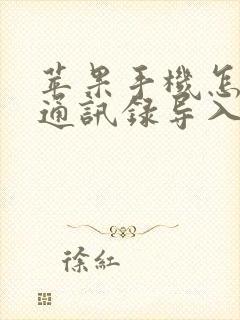 苹果手機怎
通訊録导入
徐紅